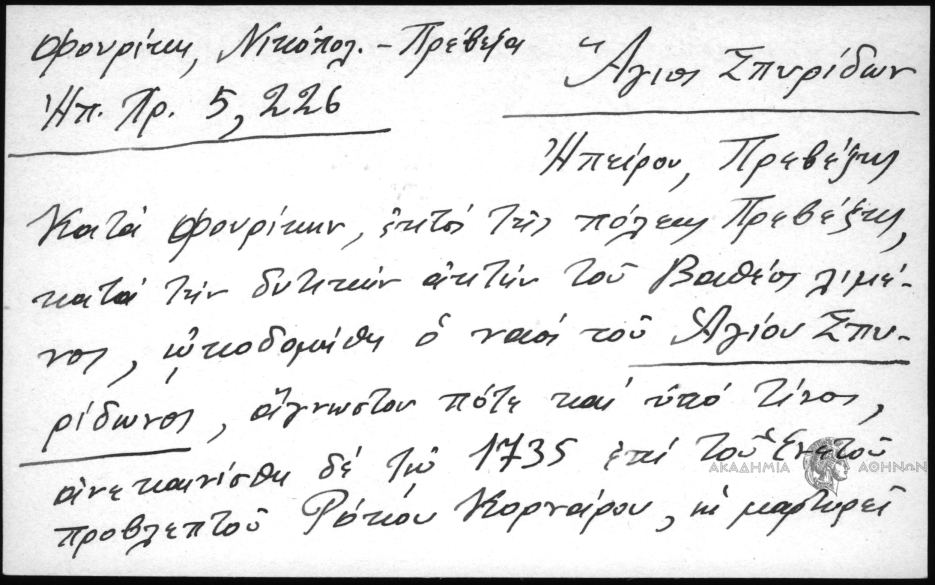 Φουρίκη, Νικόπολ. – Πρέβεζα
Ἠπ. Χρ. 5, 226
Ἅγιος Σπυρίδων
Ἠπείρου, Πρεβέζης
Κατά Φουρίκην, ἐκτός τῆς πόλεως Πρεβέζης,
κατά τήν δυτικήν ἀκτήν τοῦ Βαθέος λιμέ-
νος, ᾠκοδομήθη ὁ ναός τοῦ Ἁγίου Σπυ-
ρίδωνος, ἄγνωστον πότε καί ὑπό τίνος,
ἀνεκαινίσθη δέ τῷ 1735 ἐπί τοῦ Ἑνετοῦ
προβλεπτοῦ Κορνάρου, ὡς μαρτυρεῖ
ΑΚΑΔΗΜΙΑ ΑΘΗΝΩΝ